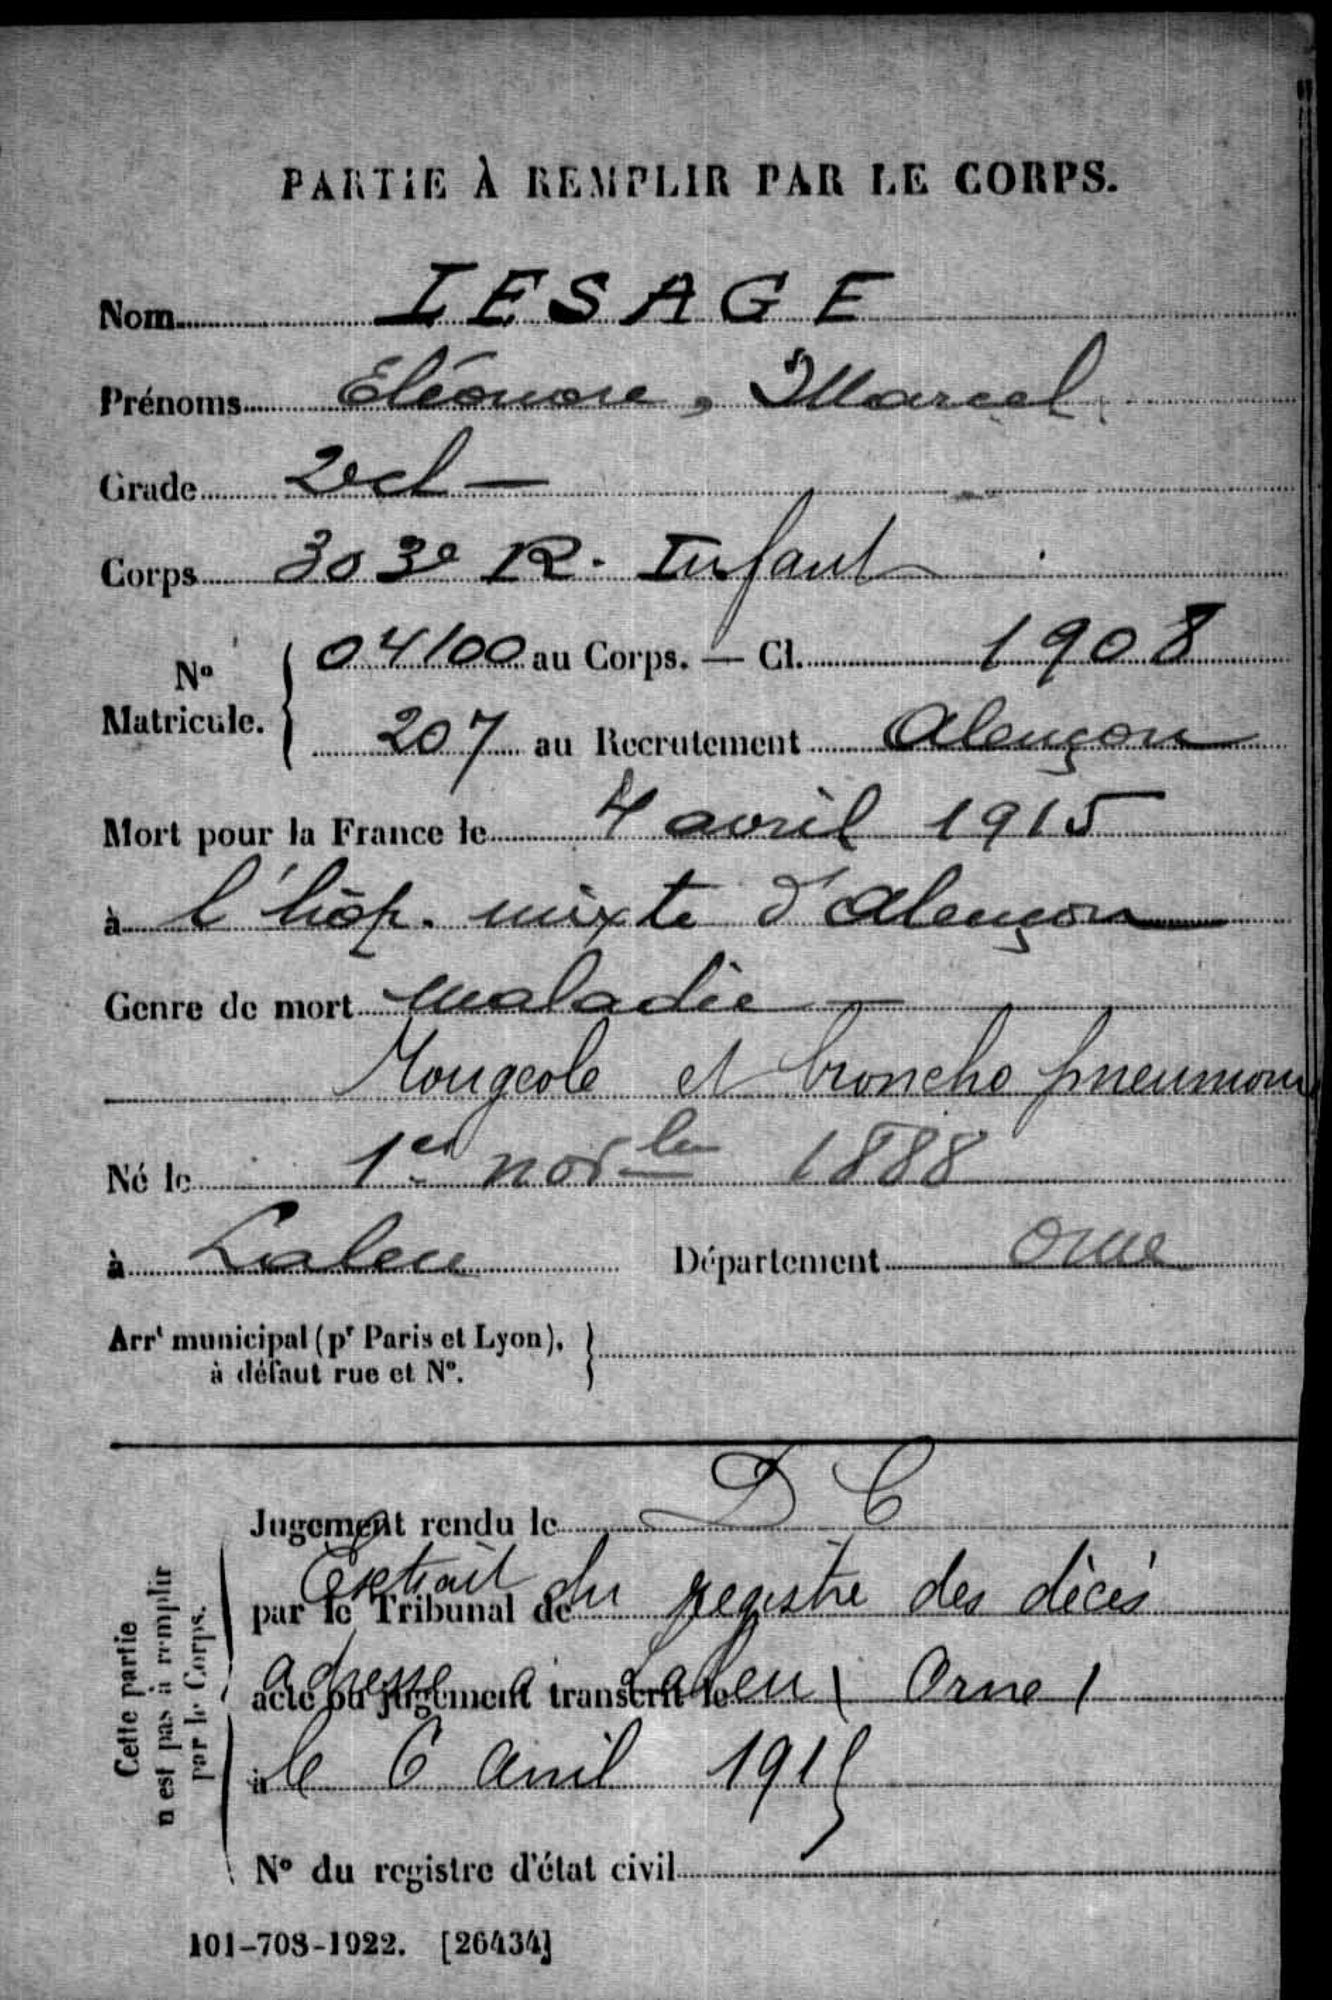 PARTIE À REMPLIR PAR LE CORPS.
Nom LESAGE
Prénoms Eléonore, Marcel
Grade 2e cl –
Corps 303e R. Infant
No Matricule. { 04100 au Corps. — Cl. 1908
207 au Recrutement Alençon
Mort pour la France le 4 avril 1915
à l'hôp. mixte d'Alençon
Genre de mort maladie –
Rougeole et broncho pneumonie
Né le 1er novbre 1888
à Laleu Département Orne
Arrt municipal (pr Paris et Lyon), }
à défaut rue et No.
D C
Jugement rendu le
Extrait du registre des décès
par le Tribunal de
adressé à Laleu (Orne)
acte ou jugement transcrit le
à le 6 avril 1915
No du registre d'état civil
Cette partie
n'est pas à remplir
par le Corps.
101-708-1922. [26434]